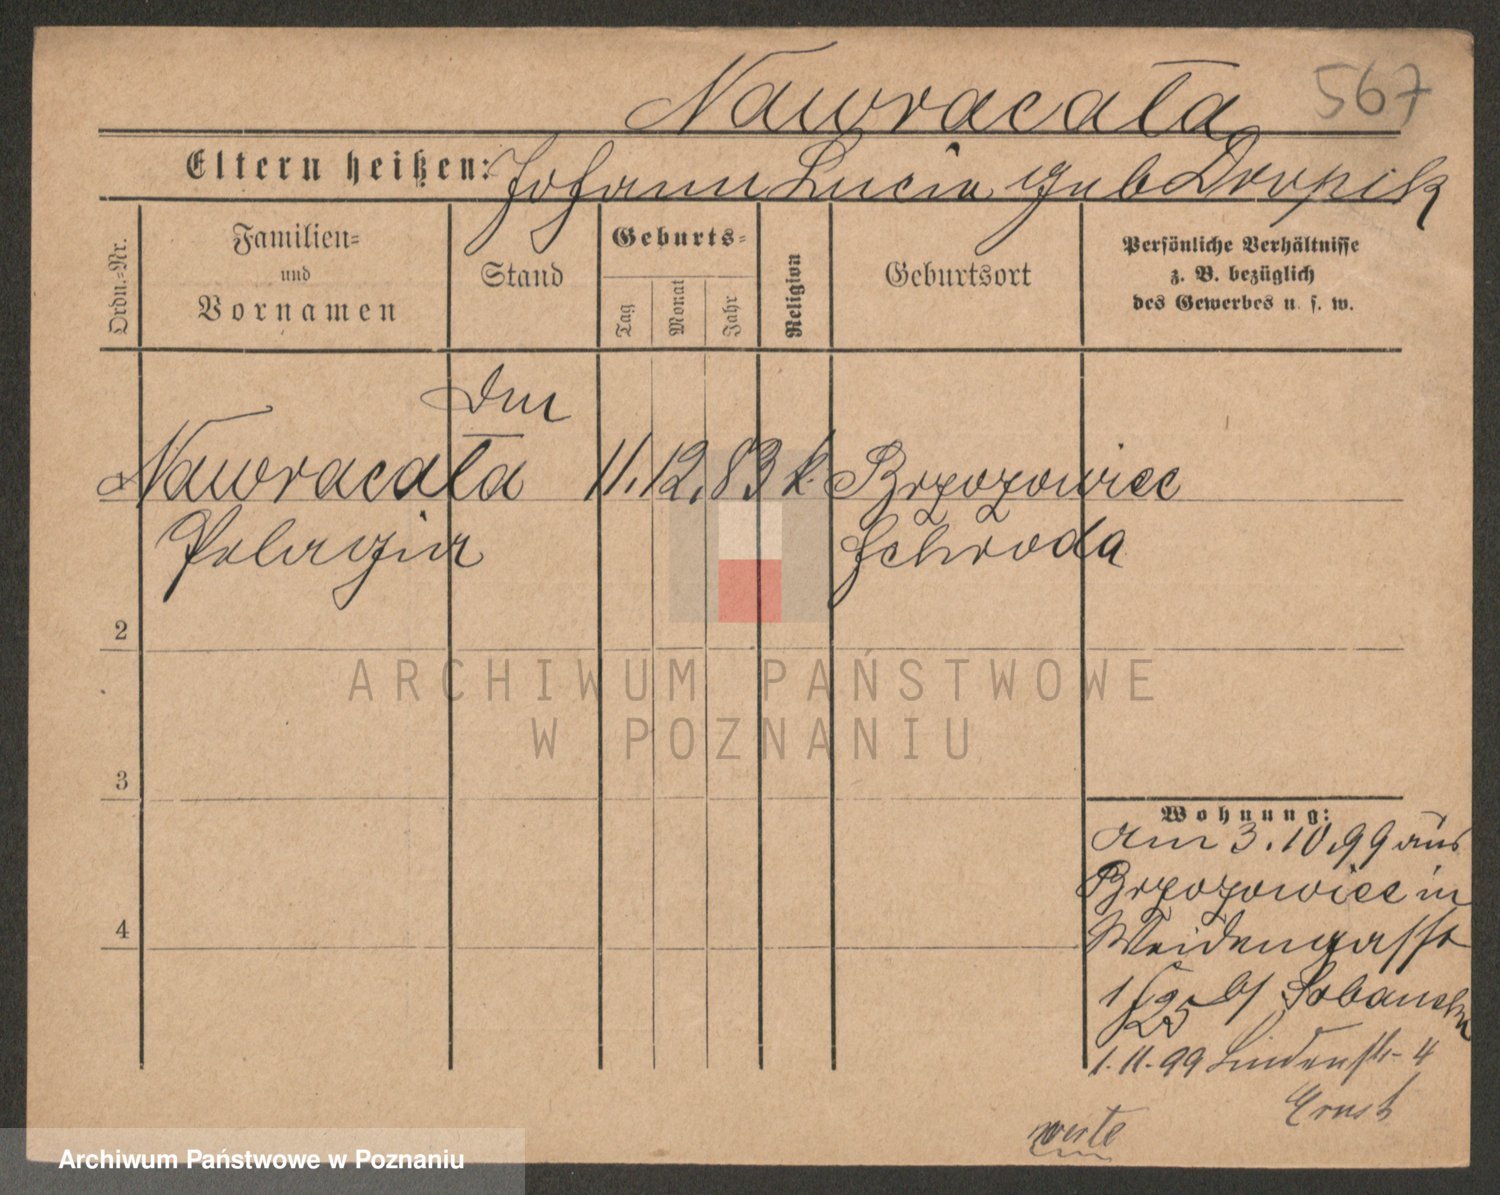 Nawracała
567
Eltern heißen: Johann Lucia geb Dropik
Ordn.-Nr.
Familien-
und
Vornamen
Stand
Geburts-
Tag
Monat
Jahr
Religion
Geburtsort
Persönliche Verhältnisse
z. B. bezüglich
des Gewerbes u. s. w.
Nawracała 11. 12. 83 k. Brzozowiec
Pelagia Schroda
2
3
4
Wohnung:
am 3.10.99 aus
Brzozowiec in
Weidengasse
25
1.11.99 Lindenstr. 4
Ernst
ARCHIWUM PAŃSTWOWE
W POZNANIU
Archiwum Państwowe w Poznaniu